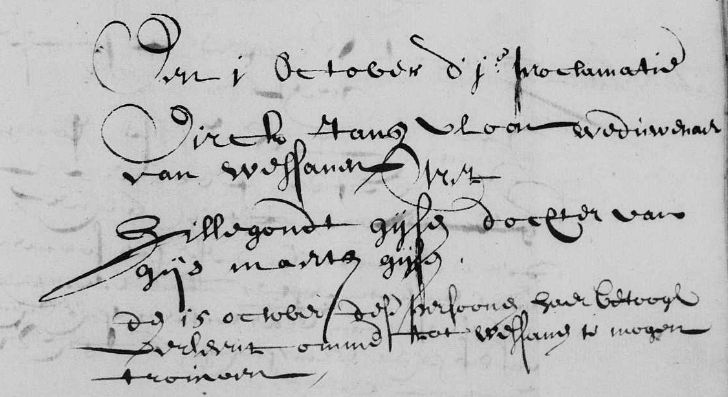 Den 1 October d' 1e proclamatie
Dirck Jans vloon weduwenaer
van wessanen Met
Hillegondt gijsen dochter van
gijs maertens gijsen.
den 15 october dese persoonen haer betoogh
verleent omme tot wessanen te mogen
trouwen